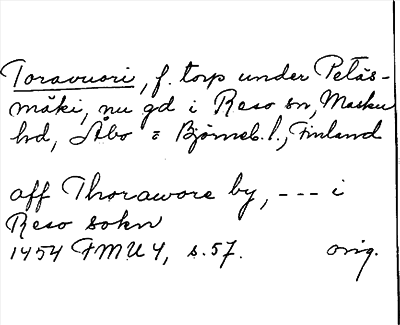 Toravuori, f. torp under Petäs-
mäki, nu gd i Reso sn, Masku
hd, Åbo = Björneb. l., Finland
aff Thorawore by, --- i
Reso sokn
1454 FMU 4, s. 57. orig.